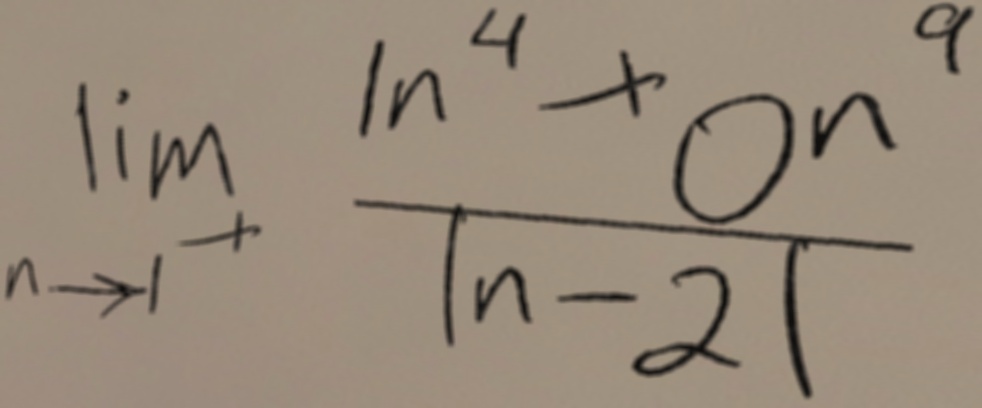 \lim_{n \to 1^+} \frac{1n^4 + 0n^9}{|n-2|}